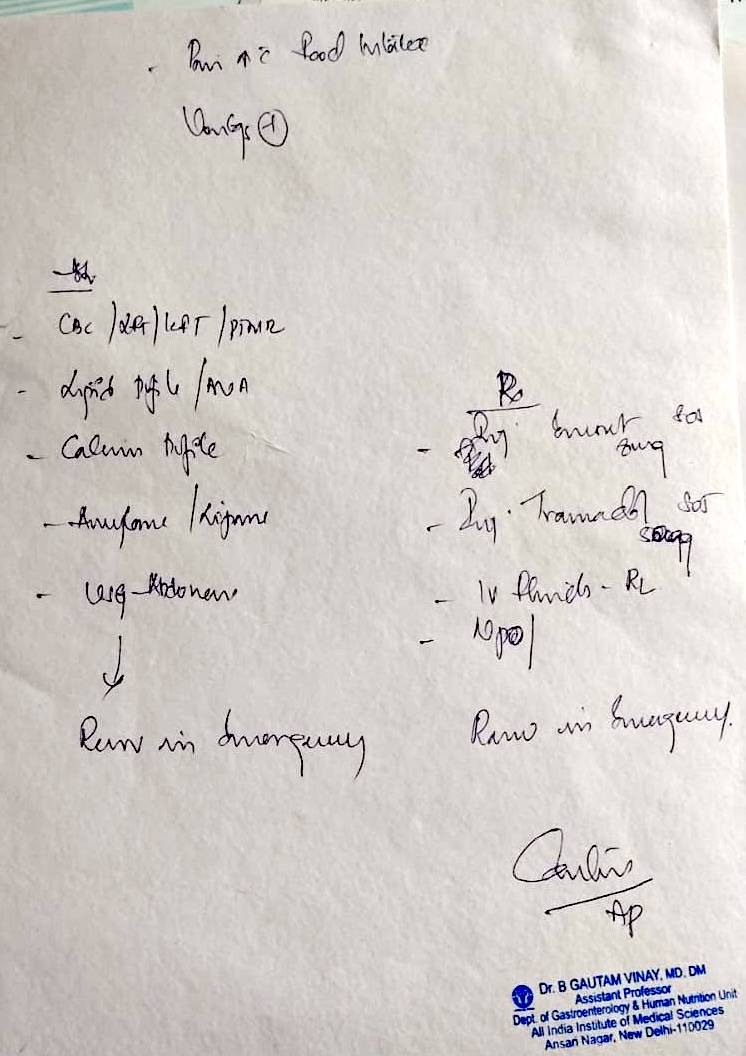 - Pain ↑ c̄ food intake
Vomitings (+)
Adv
- CBC / LFT / KFT / PT INR
- Lipid Profile / ANA
- Calcium Profile
- Amylase / Lipase
- USG Abdomen
↓
Review in Emergency
Rx
- Inj. Emeset SOS
- Inj. Tramadol SOS
- IV fluids - RL
- NPO
Review in Emergency.
AP
Dr. B GAUTAM VINAY, MD, DM
Assistant Professor
Dept. of Gastroenterology & Human Nutrition Unit
All India Institute of Medical Sciences
Ansari Nagar, New Delhi-110029